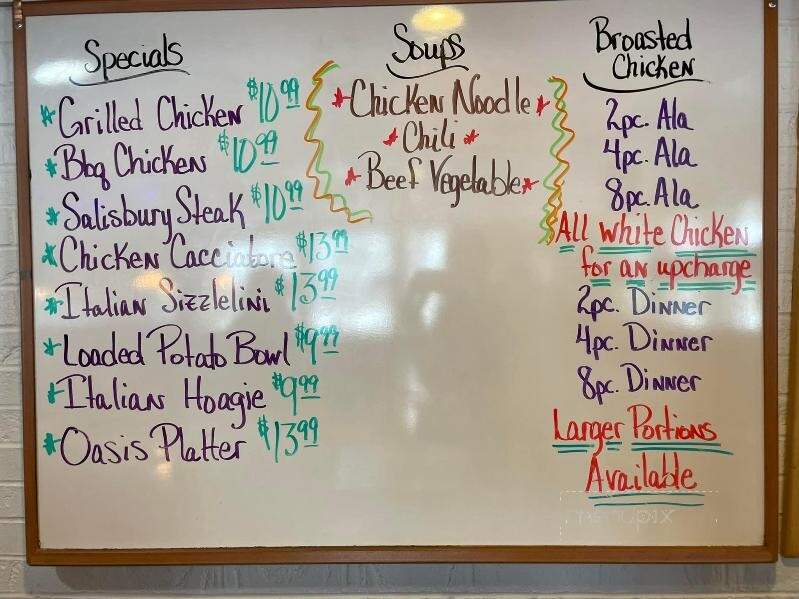 Specials
* Grilled Chicken $10.99
* Bbq Chicken $10.99
* Salisbury Steak $10.99
* Chicken Cacciatore $13.99
* Italian Sizzlelini $13.99
* Loaded Potato Bowl $9.99
* Italian Hoagie $9.99
* Oasis Platter $13.99
Soups
* Chicken Noodle *
* Chili *
* Beef Vegetable *
Broasted
Chicken
2pc. Ala
4pc. Ala
8pc. Ala
All white Chicken
for an upcharge
2pc. Dinner
4pc. Dinner
8pc. Dinner
Larger Portions
Available
menupix